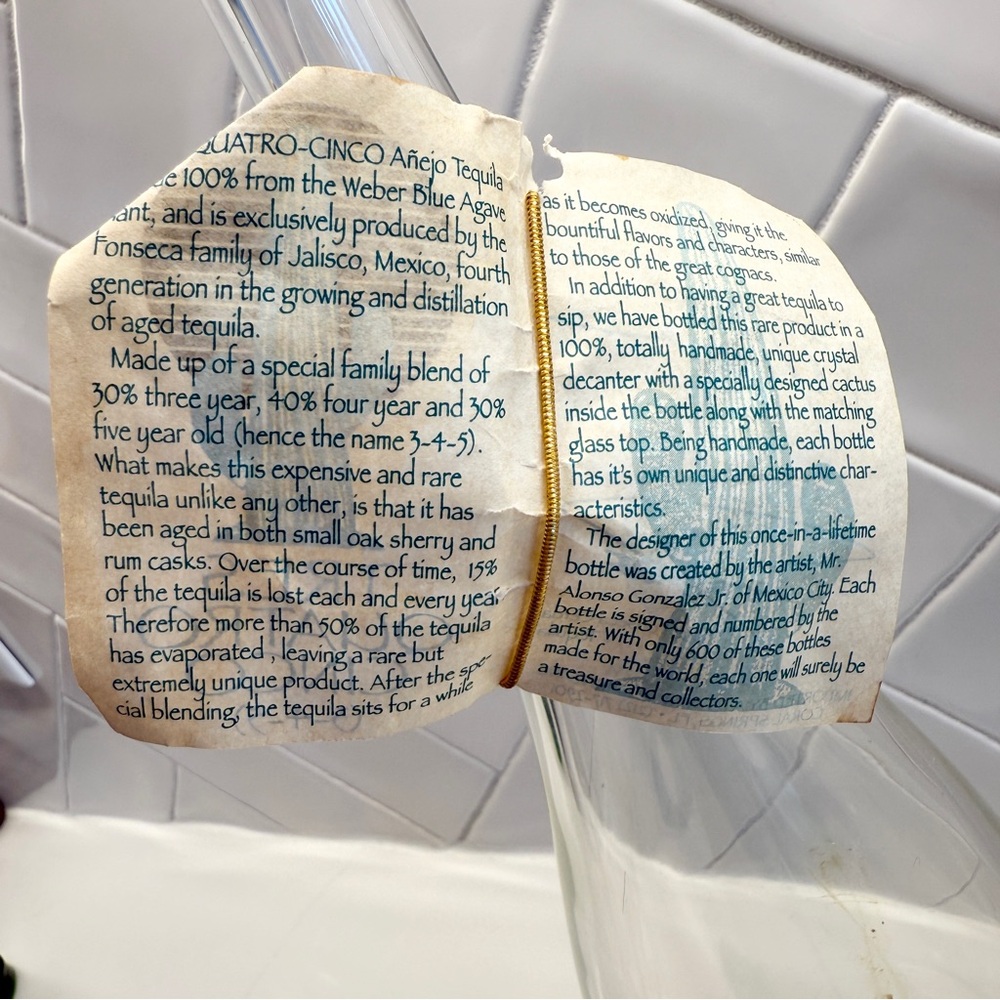 QUATRO-CINCO Añejo Tequila
100% from the Weber Blue Agave
and is exclusively produced by the
Fonseca family of Jalisco, Mexico, fourth
generation in the growing and distillation
of aged tequila.
Made up of a special family blend of
30% three year, 40% four year and 30%
five year old (hence the name 3-4-5).
What makes this expensive and rare
tequila unlike any other, is that it has
been aged in both small oak sherry and
rum casks. Over the course of time, 15%
of the tequila is lost each and every year
Therefore more than 50% of the tequila
has evaporated , leaving a rare but
extremely unique product. After the spe-
cial blending, the tequila sits for a while
as it becomes oxidized, giving it the
bountiful flavors and characters, similar
to those of the great cognacs.
In addition to having a great tequila to
sip, we have bottled this rare product in a
100%, totally handmade, unique crystal
decanter with a specially designed cactus
inside the bottle along with the matching
glass top. Being handmade, each bottle
has it's own unique and distinctive char-
acteristics.
The designer of this once-in-a-lifetime
bottle was created by the artist, Mr.
Alonso Gonzalez Jr. of Mexico City. Each
bottle is signed and numbered by the
artist. With only 600 of these bottles
made for the world, each one will surely be
a treasure and collectors.